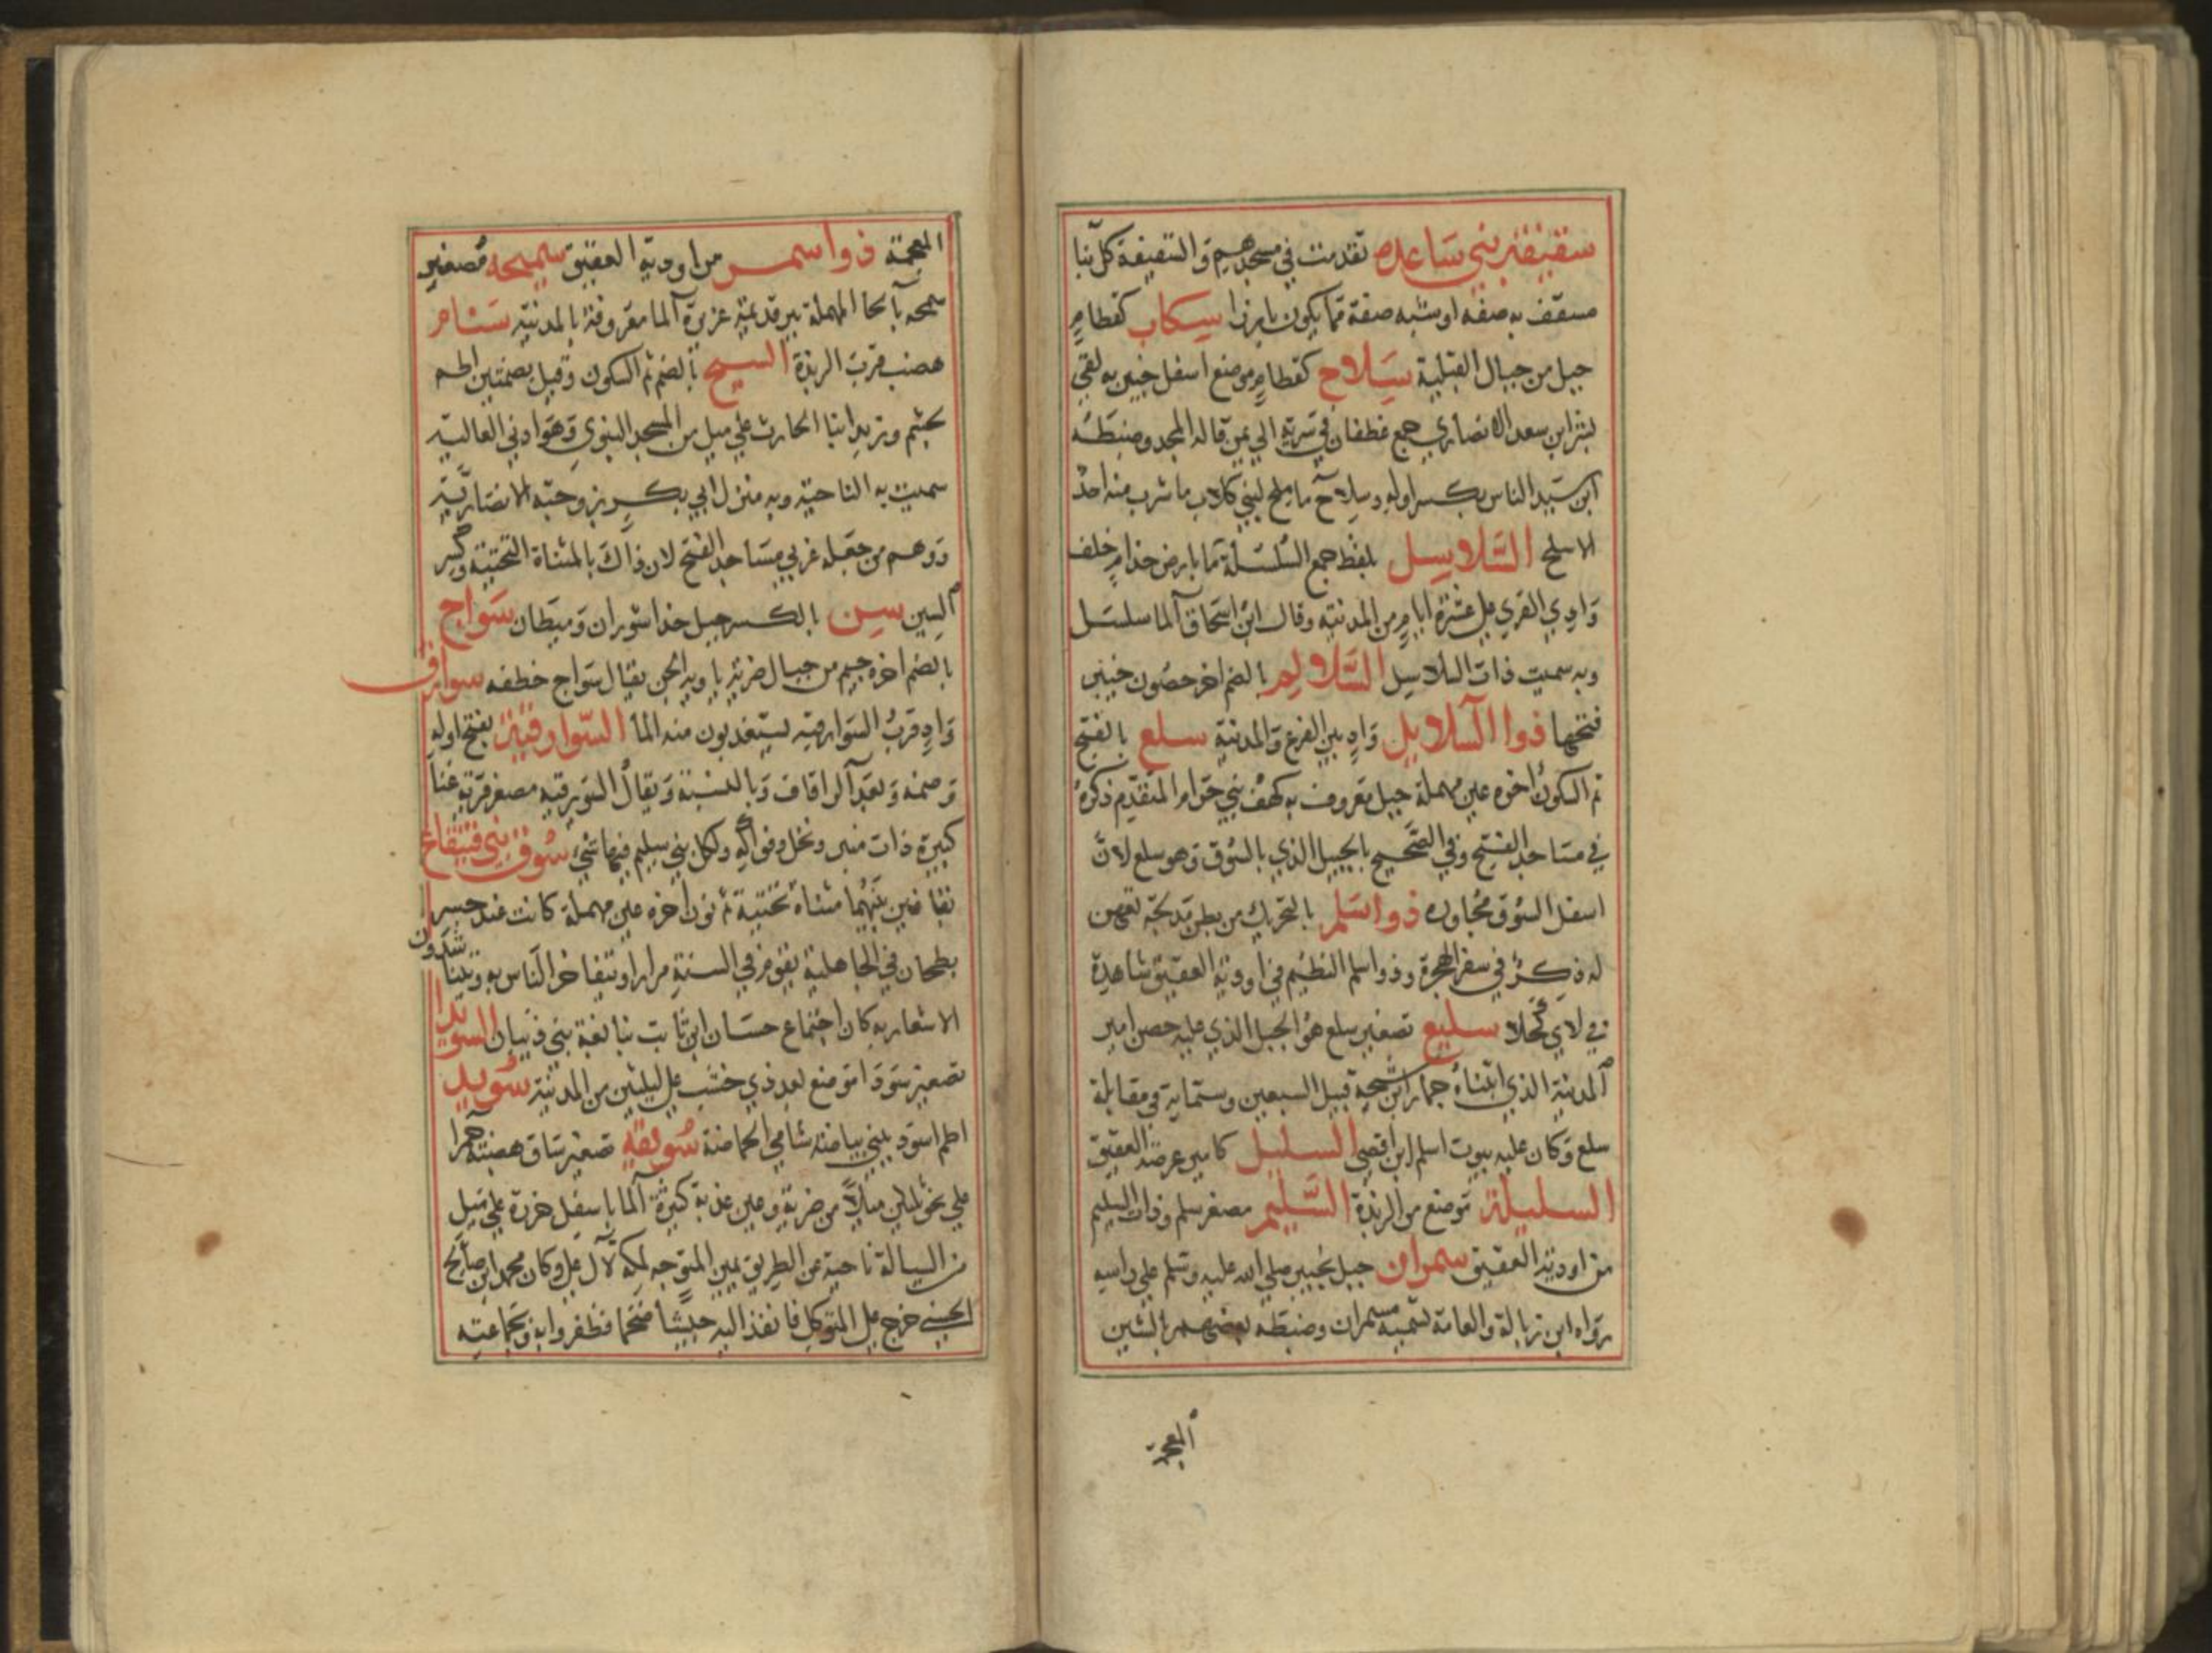 سقيفة بني ساعده تقدمت في مسجدهم والسقيفة كل بنا
مسقف به صفه او شبه صفة مما يكون بارزا سكاب كقطام
جبل من جبال القبلية سلاح كقطام موضع اسفل خيبر به لقي
بشر ابن سعد الانصاري جمع غطفان في سريته الي يمن قاله المجد وضبطه
ابن سيد الناس بكسر اوله وسلاح ما ملح لبني كلاب ما شرب منه احد
الا سلح السلاسل بلفظ جمع السلسلة ما بارض جذام خلف
وادي القري علي عشرة ايام من المدينه وقال ابن اسحاق الما سلسل
وبه سميت ذات السلاسل السلالم بالضم اخر حصون خيبر
فتحها ذوا السلايل واد بين الفرع والمدينة سلع بالفتح
ثم السكون اخره عين مهملة جبل معروف به كهف بني حرام المتقدم ذكره
في مساجد الفتح وفي الصحيح بالجبيل الذي بالسوق وهو سلع لان
اسفل السوق مجاوره ذو اسلم بالتحريك من بطن مدلجة تعهن
له ذكر في سفر الهجرة وذو اسلم النظيم في اودية العقيق شاهدة
في لاي كحلا سليع تصغير سلع هو الجبل الذي عليه حصن امير
المدينة الذي ابتناه جماز ابن شيحة قبيل السبعين وستماية في مقابلة
سلع وكان عليه بيوت اسلم ابن اقصي السليل كامير عرصة العقيق
السليلة موضع من الربذة السليم مصغر سلم وذات السليم
من اودية العقيق سمران جبل بخيبر صلي الله عليه وسلم علي راسه
رواه ابن زبالة والعامة تسميه مسمران وضبطه بعضهم بالشين
المعجمة
المعجمة ذو اسمر من اودية العقيق سميحه مصغير
سمحه بالحا المهملة بير قديمة عزيزة الما معروفة بالمدينه سنام
هضب قرب الربذة السنح بالضم ثم السكون وقيل بضمتين اطم
لجشم وزيد ابنا الحارث علي ميل من المسجد النبوي وهو ادني العالية
سميت به الناحيه وبه منزل ابي بكر بزوجته الانصارية
ووهم من جعله غربي مساجد الفتح لان ذاك بالمثناة التحتية وكسر
السين سن بالكسر جبل حذا شوران وميطان سواج
بالضم اخره جيم من جبال ضرية ياويه الجن يقال سواج خطفه سوارق
واد قرب السوارقيه يستعذبون منه الما السوارقية بفتح اوله
وضمه وبعد الرا قاف ويا النسبة ويقال السويرقيه مصغر قرية غنا
كبيرة ذات منبر ونخل وفواكه ولكل بني سليم فيها شي سوق بني قينقاع
بقافين بينهما مثناه تحتية ثم نون اخره عين مهملة كانت عند جسر
بطحان في الجاهلية تقوم في السنة مرارا ويتفاخر الناس به ويتناشدون
الاشعار به كان اجتماع حسان ابن ثابت بنابغة بني ذبيان السويدا
تصغير سودا موضع بعد ذي خشب علي ليلتين من المدينة سويد
اطم اسود لبني بياضه شامي الحماضة سويقه تصغير ساق هضبة حمرا
علي نحو ثلثين ميلا من ضرية وعين عذبة كثيرة الما باسفل حزرة علي ميل
من السيالة ناحية عن الطريق يمين المتوجه لمكه لآل علي وكان محمد ابن صالح
الحسني خرج علي المتوكل فانفذ اليه جيشا ضخما فظفروا به وبجماعته